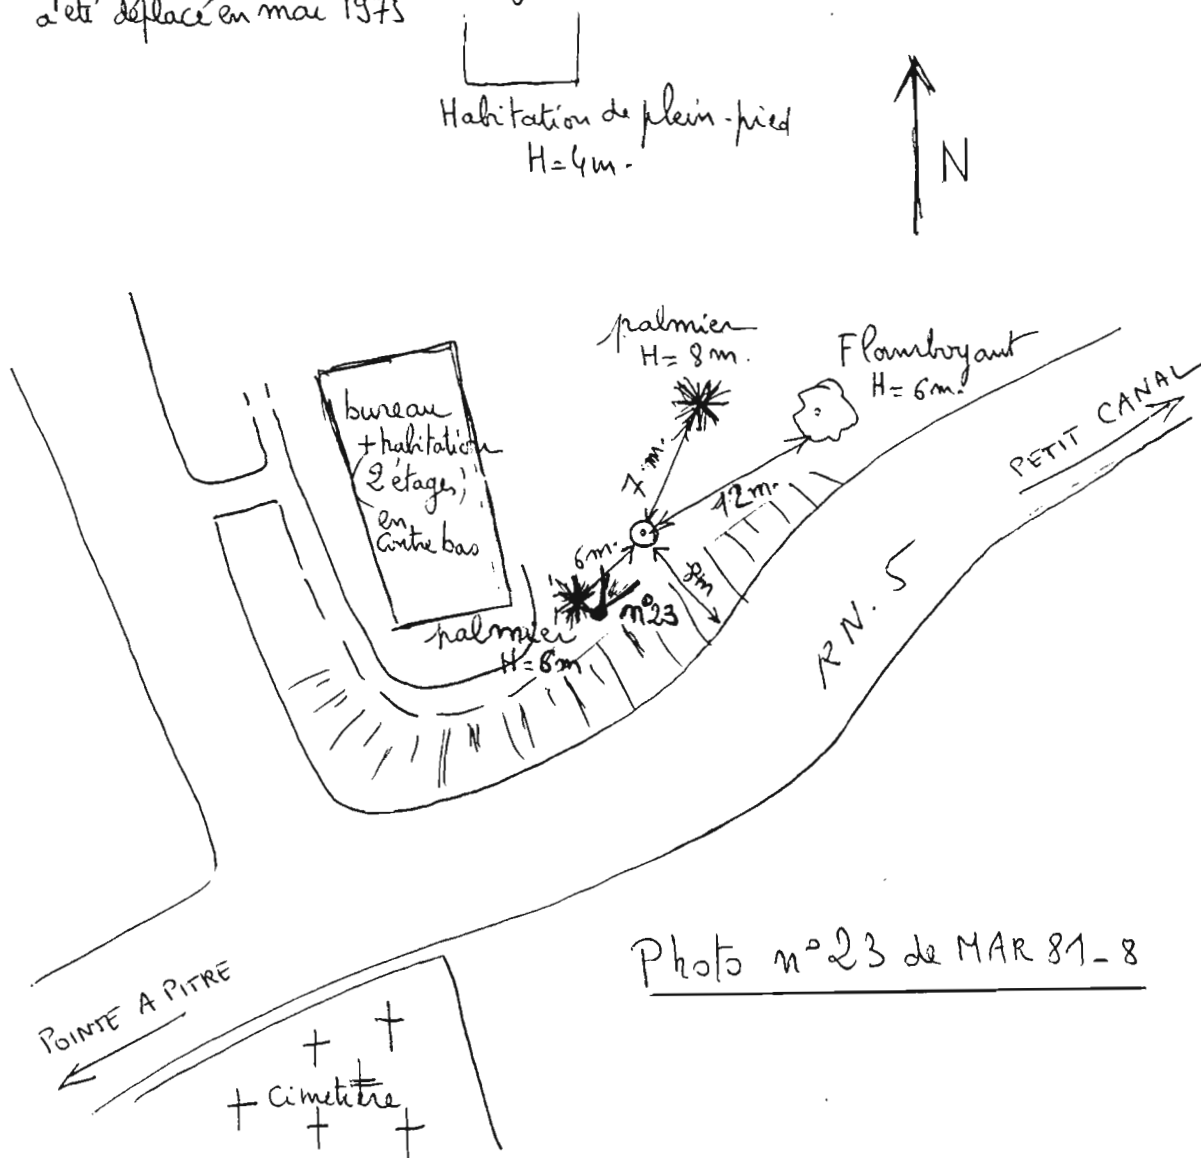 a été déplacé en mai 1975
Habitation de plein-pied
H=4m.
N
palmier
H= 8m.
Flamboyant
H=6m.
bureau
+habitation
(2 étages)
en
contrebas
7.m.
12m.
PETIT CANAL
6m.
8m
n°23
palmier
H=6m
RN.5
Photo n°23 de MAR 81-8
POINTE A PITRE
Cimetière